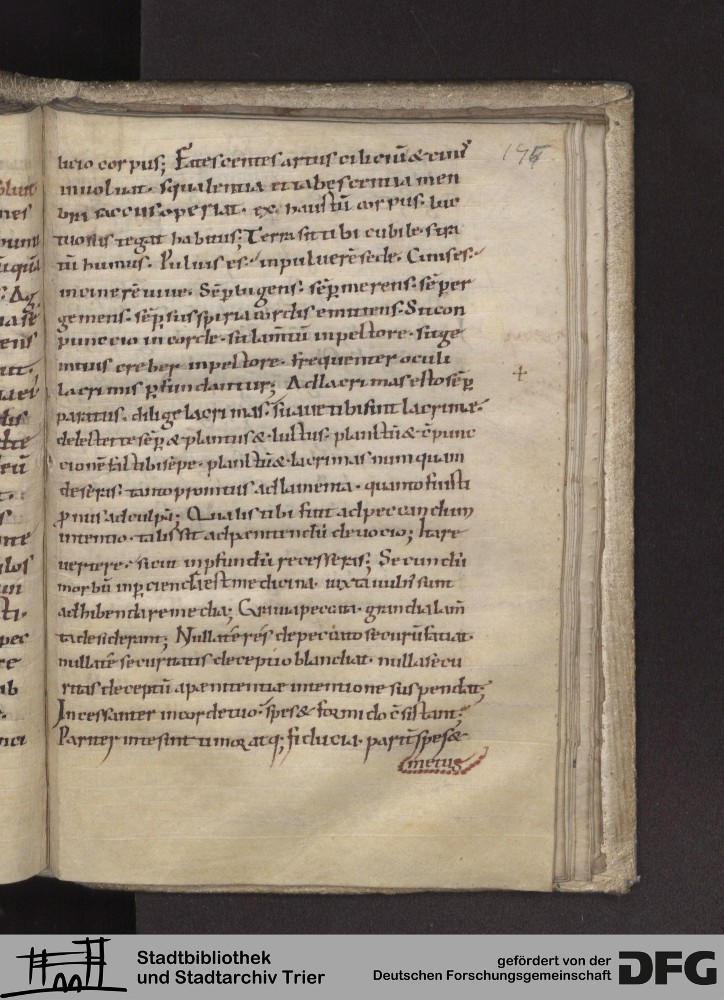 195
lucio corpus; Fatescentes artus ciliciũ & cinis
inuoluat. squalentia et tabescentia men
bra saccus operiat. ex haustũ corpus. luc
tuosus tegat habitus; Terra sit tibi cubile. stra
tũ humus. Puluis es. in puluerẽ sede. Cinis es.
in cinerẽ uiue. Sẽp lugens. sẽp merens. sẽper
gemens. sẽp suspiria cordis emittens. Sit con
punccio in corde. sit lam̃tũ in pectore. sit ge
mitus creber in pectore. frequenter oculi
lacrimis pfundantur; Ad lacrimas esto sẽp
paratus. dilige lacrimas. suaue tibi sint lacrimæ.
delectet te sẽp & plantus & luctus. planctũ & c̃punc
cionẽ fac tibi sẽpe. planctũ & lacrimas numquam
deseris. tanto promtus ad lamenta. quanto fuisti
pnus ad culpã; Qualis tibi fuit ad peccandum
intentio. talis sit ad penitendũ deuocio; Ita re
uertere. sicut in pfundũ recesseris; Secundũ
morbũ inpcienda est medicina. iuxta uulñ sunt
adhibenda remedia; Grauia peccata. grandia lam̃
ta desiderant; Nulla tẽ res de peccato securũ faciat.
nulla tẽ securitatis deceptio blandiat. nulla secu
ritas deceptũ a pænitentiæ intentione suspendat;
Incessanter in corde tuo. spes & formido c̃sistant;
Pariter in te sint timor atq; fiducia. paritr̃ spes &
metus
✢
Stadtbibliothek
und Stadtarchiv Trier
gefördert von der
Deutschen Forschungsgemeinschaft
DFG